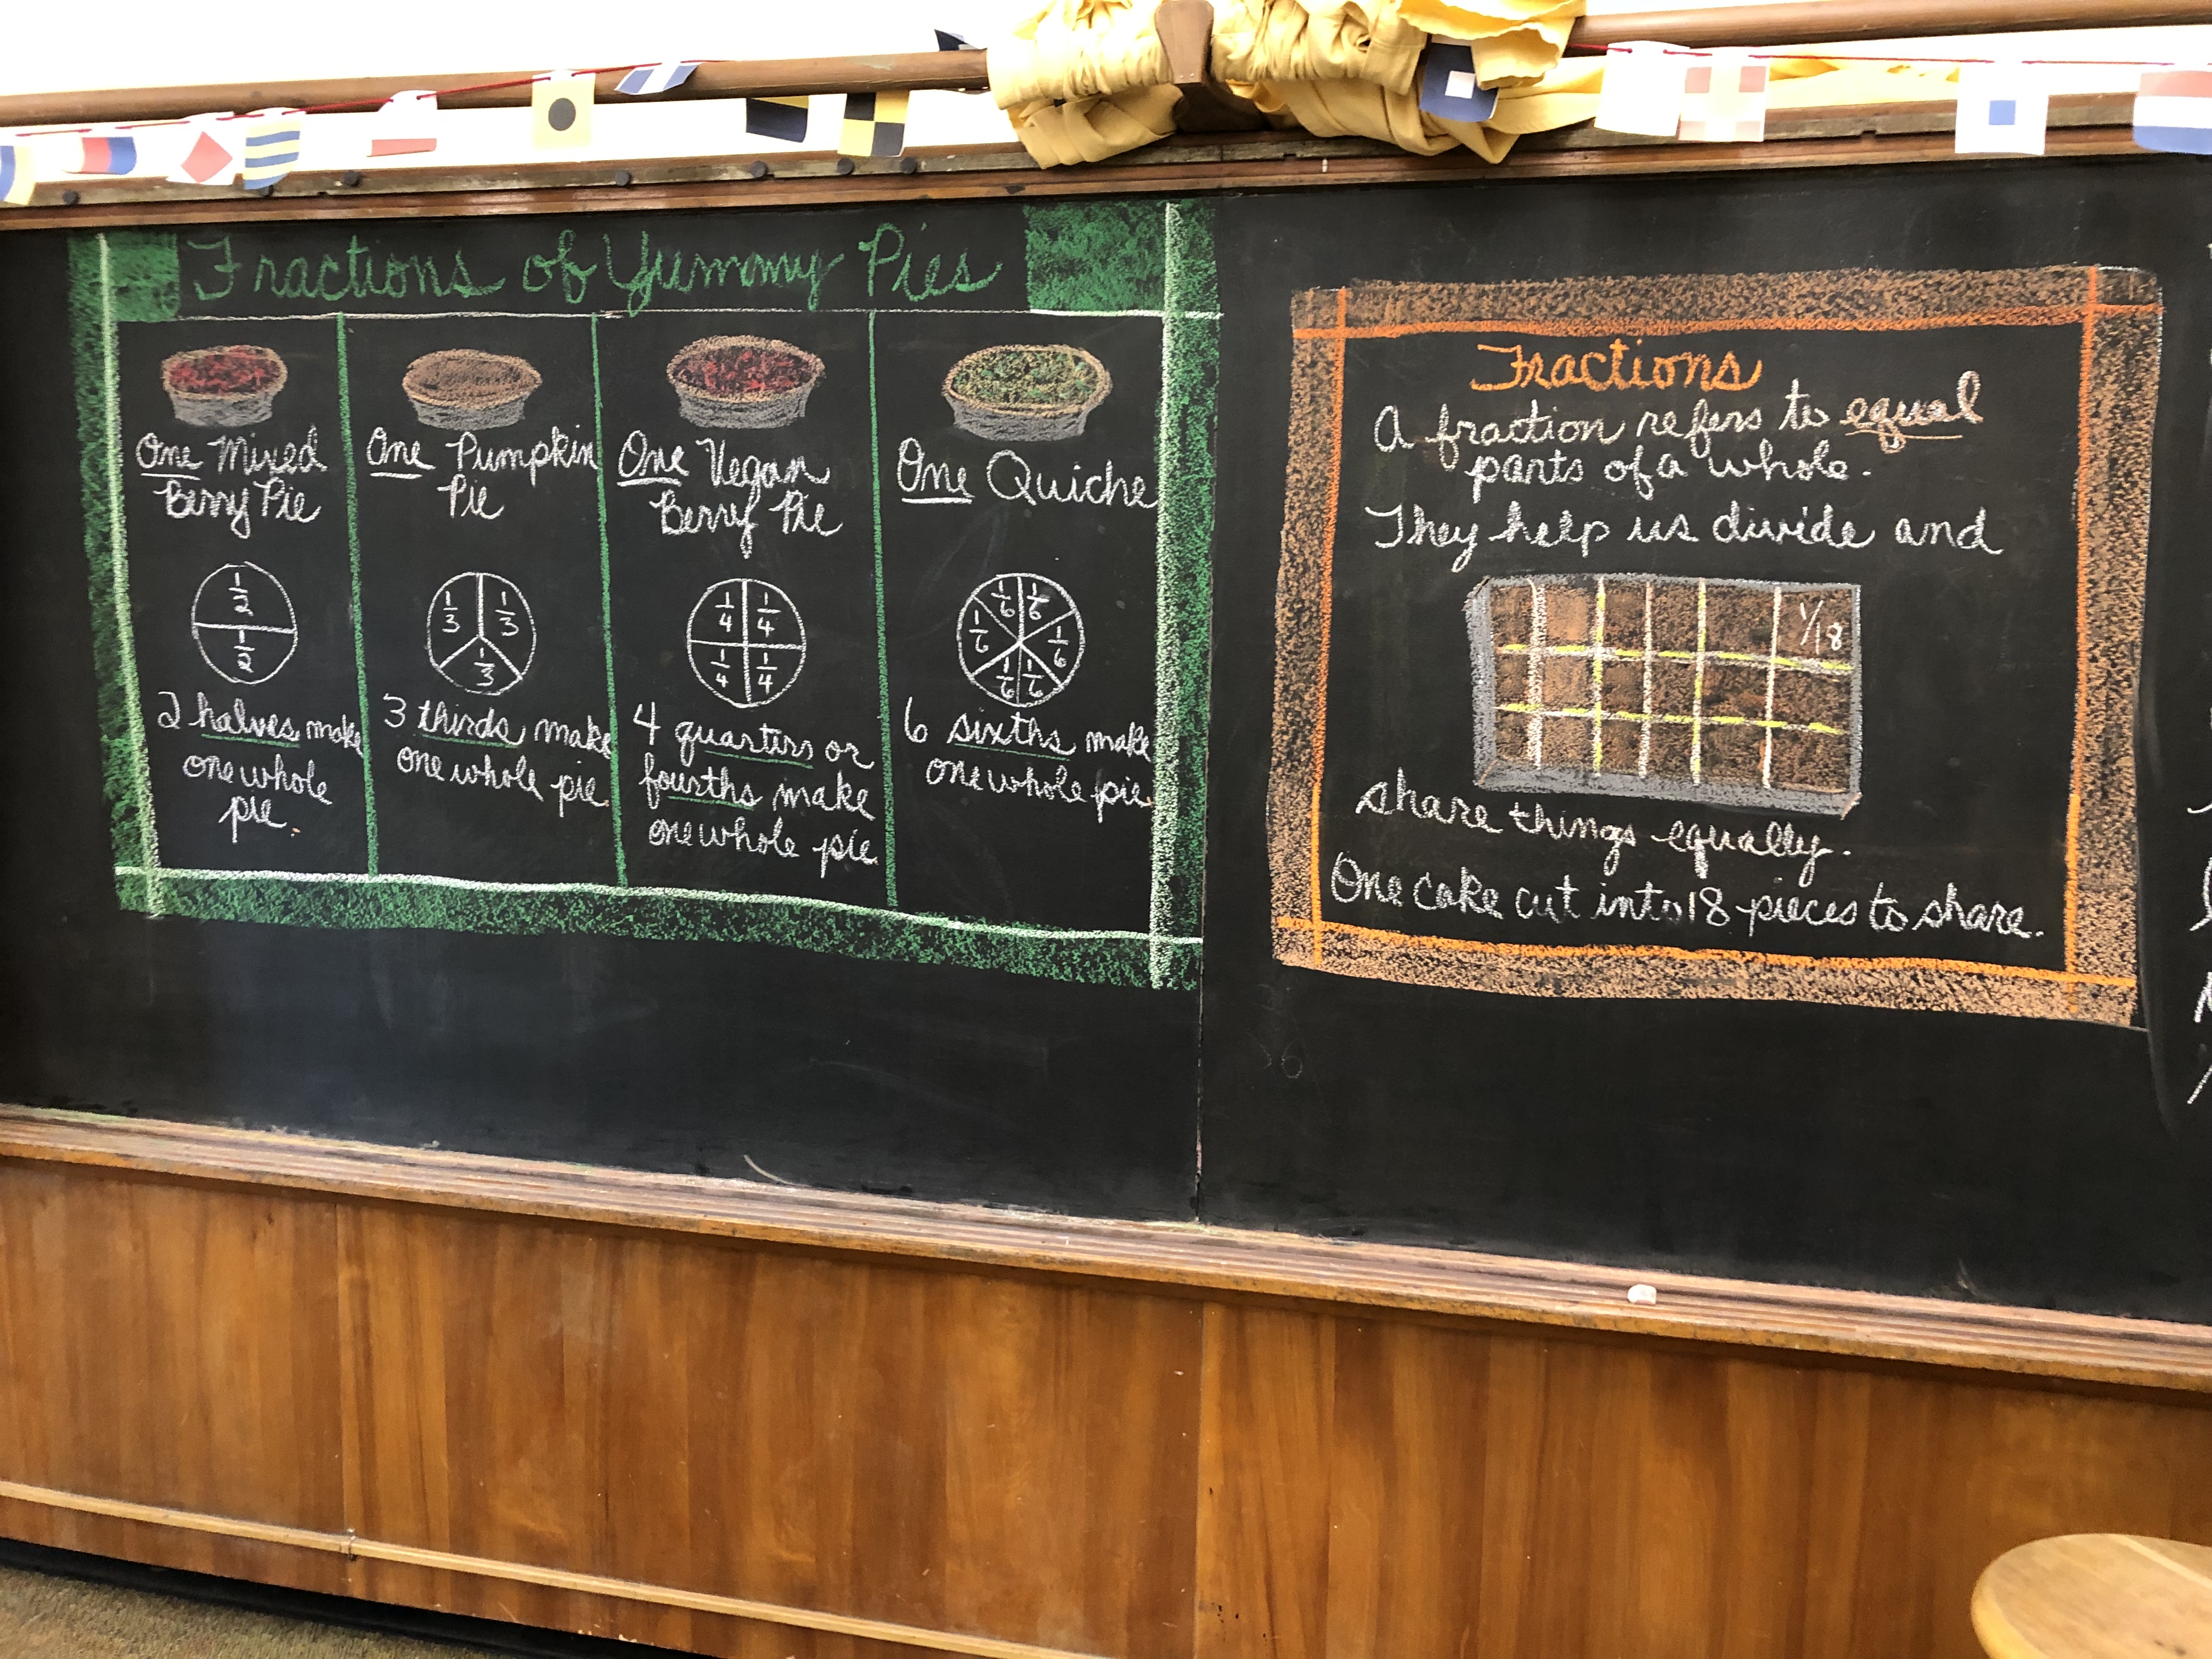 Fractions of Yummy Pies
One Mixed
Berry Pie
1/2
1/2
2 halves make
one whole
pie.
One Pumpkin
Pie
1/3 1/3
1/3
3 thirds make
one whole pie.
One Vegan
Berry Pie
1/4 1/4
1/4 1/4
4 quarters or
fourths make
one whole pie
One Quiche
1/6 1/6
1/6 1/6
1/6 1/6
6 sixths make
one whole pie.
Fractions
A fraction refers to equal
parts of a whole.
They help us divide and
1/18
share things equally.
One cake cut into 18 pieces to share.